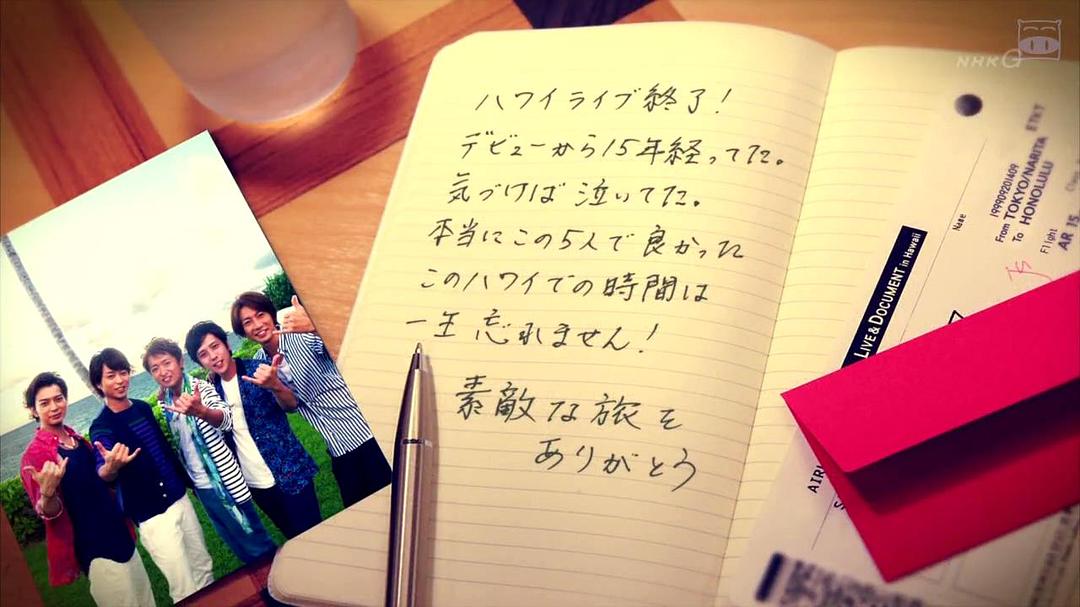 NHK G
ハワイライブ終了!
デビューから15年経ってた。
気づけば泣いてた。
本当にこの5人で良かった
このハワイでの時間は
一生忘れません!
素敵な旅を
ありがとう
LIVE & DOCUMENT in Hawaii
Name
199909201409
From TOKYO/NARITA
To HONOLULU
Flight
AR 15
ETKT